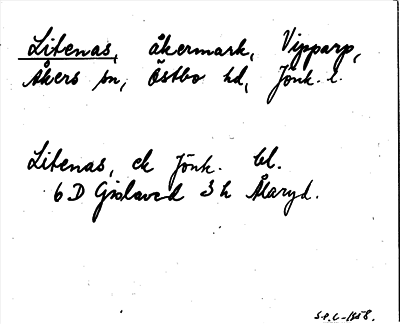 Litenas, åkermark, Vipparp,
Åkers sn, Östbo hd, Jönk. l.
Litenas, ek Jönk. bl.
6 D Gislaved 3 h Ålaryd.